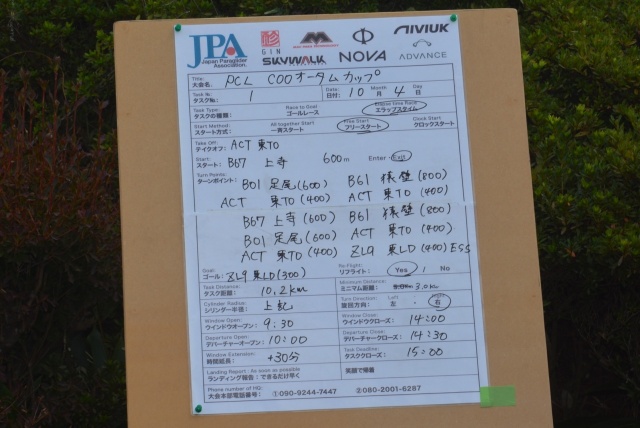 JPA
Japan Paraglider
Association.
GIN
SKYWALK
NOVA
NIVIUK
ADVANCE
Title:
大会名: PCL COOオータムカップ
Task №
タスク№: 1 Date: 日付: 10 Month 月 4 Day 日
Task Type: Race to Goal Elapse time Race
タスクの種類: ゴールレース エラップスタイム
Start Method: All together Start Free Start Clock Start
スタート方式: 一斉スタート フリースタート クロックスタート
Take Off:
テイクオフ: ACT 東TO
Start:
スタート: B67 上寺 600m Enter Exit
Turn Points:
ターンポイント: B01 足尾(600) B61 猿壁(800)
ACT 東TO(400) ACT 東TO(400)
B67 上寺(600) B61 猿壁(800)
B01 足尾(600) ACT 東TO(400)
ACT 東TO(400) ZL9 東LD(400)ESS
Goal: Re-Flight:
ゴール: ZL9 東LD(300) リフライト: Yes / No
Task Distance: Minimum Distance:
タスク距離: 10.2km ミニマム距離: 3.0km
Cylinder Radius: Turn Direction: Left Right
シリンダー半径: 上記 旋回方向: 左 ・ 右
Window Open: Window Close:
ウインドウオープン: 9:30 ウインドウクローズ: 14:00
Departure Open: Departure Close:
デパーチャーオープン: 10:00 デパーチャークローズ: 14:30
Window Extension: Task Deadline:
時間延長: +30分 タスククローズ: 15:00
Landing Report : As soon as possible
ランディング報告:できるだけ早く 笑顔で帰着
Phone number of HQ:
大会本部電話番号: ①090-9244-7447 ②080-2001-6287